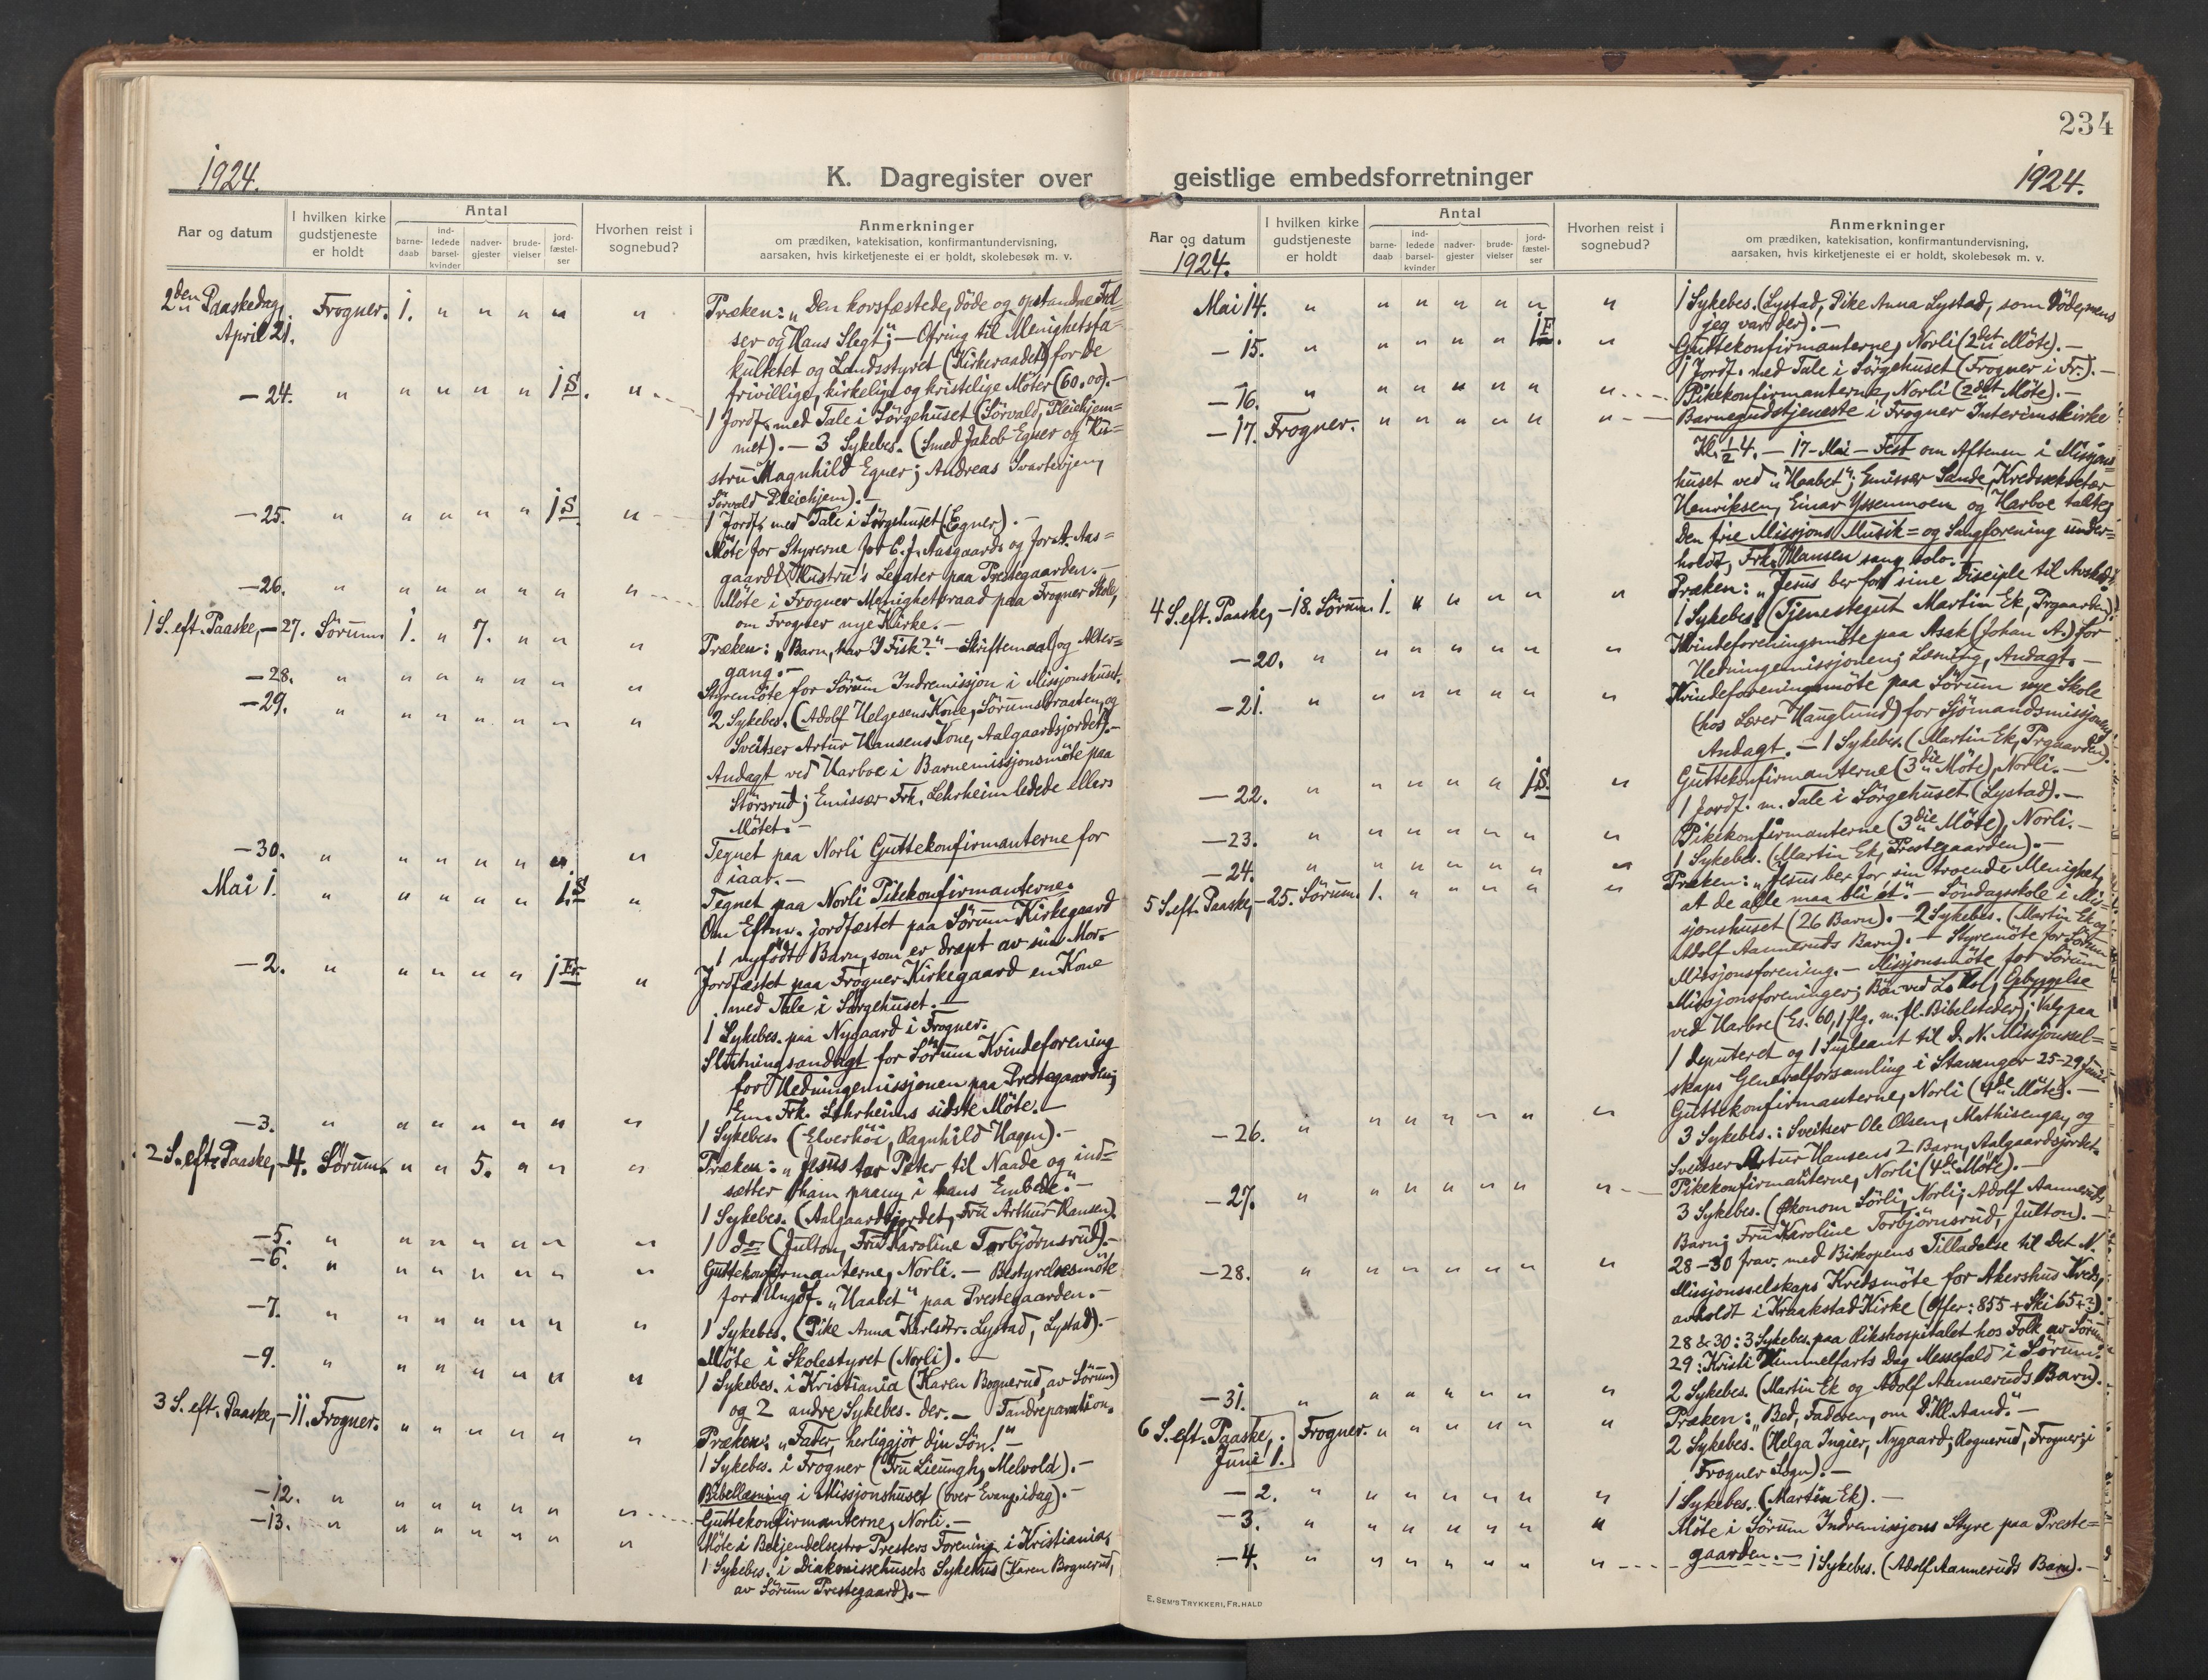 234
1924.
K. Dagregister over geistlige embedsforretninger
1924.
Aar og datum
I hvilken kirke gudstjeneste er holdt
Antal
barne-daab
ind-ledede barsel-kvinder
nadver-gjester
brude-vielser
jord-fæstel-ser
Hvorhen reist i sognebud?
Anmerkninger
om prædiken, katekisation, konfirmantundervisning,
aarsaken, hvis kirketjeneste ei er holdt, skolebesøk m. v.
2den Paaskedag, April 21. Frogner. 1. " " " " "
Præken: "Den korsfæstede, døde og opstandne Frel-
ser og Hans Slegt"; — Ofring til Menighetsfa-
kultetet og Landsstyret (Kirkeraadet) for de
frivillige, kirkelige og kristelige Møter (60,00). —
—24. " " " " " 1 S. "
1 Jordf. med Tale i Sörgehuset (Sörvald, Pleiehjem=
met). — 3 Sykebes. (Smed Jakob Egner og Hu=
stru Magnhild Egner; Andreas Svartevjen,
Sörvald Pleiehjem). —
—25. " " " " " 1 S. "
1 Jordf. med Tale i Sörgehuset (Egner). —
Möte for Styrerne for C. J. Aasgaards og for A. Aas=
gaard's Hustru's Legater paa Prestegaarden. —
—26. " " " " " " "
Möte i Frogner Menighetsraad paa Frogner Skole,
om Frogner nye Kirke. —
1 S. eft. Paaske, —27. Sörum 1. " 7. " " "
Præken: "Barn, har I Fisk?" — Skriftemaal og Alter=
gang. —
—28. " " " " " " "
Styremöte for Sörum Indremissjon i Missjonshuset.
—29. " " " " " " "
2 Sykebes. (Adolf Helgesens Kone, Sörumsbraaten, og
Sveitser Artur Hansens Kone, Aalgaardsjordet). —
Andagt ved Harboe i Barnemissjonsmöte paa
Störsrud; Emissær Frk. Lehrheim ledede ellers
Mötet. —
—30. " " " " " " "
Tegnet paa Norli Guttekonfirmanterne for
iaar. —
Mai 1. " " " " " 1 S "
Tegnet paa Norli Pikekonfirmanterne.
Om Eftm. jordfæstet paa Sörum Kirkegaard
1 nyfödt Barn, som er dræpt av sin Mor.
—2. " " " " " 1 Fr. "
Jordfæstet paa Frogner Kirkegaard en Kone
med Tale i Sörgehuset. —
1 Sykebes. paa Nygaard i Frogner.
Slutningsandagt for Sörum Kvindeforening
for Hedningemissjonen paa Prestegaarden;
Em. Frk. Lehrheims sidste Möte. —
—3. " " " " " " "
1 Sykebes. (Elverhöi, Ragnhild Hagen). —
2 S. eft. Paaske, —4. Sörum " " 5. " " "
Præken: "Jesus tar Peter til Naade og ind=
sætter ham paany i hans Embede." —
1 Sykebes. (Aalgaardsjordet, Fru Arthur Hansen).
—5. " " " " " " "
1 do (Julton, Fru Karoline Torbjörnsrud). —
—6. " " " " " " "
Guttekonfirmanterne, Norli. — Bestyrelsesmöte
for Ungdf. "Haabet" paa Prestegaarden. —
—7. " " " " " " "
1 Sykebes. (Pike Anna Karlsdtr. Lystad, Lystad). —
Möte i Skolestyret (Norli). —
—9. " " " " " " "
1 Sykebes. i Kristiania (Karen Bognerud, av Sörum)
og 2 andre Sykebes. der. — Tandreparation.
3 S. eft. Paaske, —11. Frogner. " " " " " "
Præken: "Fader, herliggjör din Sön!" —
1 Sykebes. i Frogner (Fru Lieungh, Melvold). —
—12. " " " " " " "
Bibellæsning i Missjonshuset (over Evang. idag). —
Guttekonfirmanterne, Norli. —
—13. " " " " " " "
Möte i Bekjendelsestro Presters Forening i Kristiania;
1 Sykebes. i Diakonissehusets Sykehus (Karen Bognerud,
av Sörum Prestegaard). —
Aar og datum
1924.
I hvilken kirke gudstjeneste er holdt
Antal
barne-daab
ind-ledede barsel-kvinder
nadver-gjester
brude-vielser
jord-fæstel-ser
Hvorhen reist i sognebud?
Anmerkninger
om prædiken, katekisation, konfirmantundervisning,
aarsaken, hvis kirketjeneste ei er holdt, skolebesøk m. v.
Mai 14. " " " " " " "
1 Sykebes. (Lystad, Pike Anna Lystad, som döde, mens
jeg var der). —
Guttekonfirmanterne, Norli (2det Möte). —
—15. " " " " " 1 F. "
1 Jordf. med Tale i Sörgehuset (Frogner i Fr.). —
—16. " " " " " " "
Pikekonfirmanterne, Norli (2det Möte). —
—17. Frogner. " " " " " "
Barnegudstjeneste i Frogner Interimskirke
Kl. ½4. — 17-Mai-Fest om Aftenen i Missjons=
huset ved "Haabet"; Emissær Sande, Kredssekretær
Henriksen, Einar Yssenmoen og Harboe talte;
Den frie Missjons Musik= og Sangforening under=
holdt, Frk. Hansen sang solo. —
4 S. eft. Paaske, —18. Sörum 1. " " " " "
Præken: "Jesus ber for sine Disciple til Avsked."
1 Sykebes. (Tjenestegut Martin Ek, Prgaarden).
—20. " " " " " " "
Kvindeforeningsmöte paa Asak (Johan A.) for
Hedningemissjonen; Læsning, Andagt. —
—21. " " " " " " "
Kvindeforeningsmöte paa Sörum nye Skole
(hos Lærer Hauglund) for Sjömandsmissjonen;
Andagt. — 1 Sykebes. (Martin Ek, Prgaarden).
Guttekonfirmanterne (3die Möte), Norli. —
—22. " " " " " 1 S. "
1 Jordf. m. Tale i Sörgehuset (Lystad). —
—23. " " " " " " "
Pikekonfirmanterne (3die Möte), Norli. —
—24. " " " " " " "
1 Sykebes. (Martin Ek, Prestegaarden). —
5 S. eft. Paaske, —25. Sörum 1. " " " " "
Præken: "Jesus ber for sin troende Menighet,
at de alle maa bli ét." — Söndagsskole i Mis-
sjonshuset (26 Barn). — 2 Sykebes. (Martin Ek og
Adolf Aanneruds Barn). — Styremöte for Sörum
Missjonsforening. — Missjonsmöte for Sörum
Missjonsforeninger; Opbyggelse
ved Harboe (Es. 60,1 flg. m. fl. Bibelsteder); Valg paa
1 deputeret og 1 Supleant til D. N. Missjonssel=
skaps Generalforsamling i Stavanger 25-29 Juni.
—26. " " " " " " "
Guttekonfirmanterne, Norli (4de Möte). —
3 Sykebes.: Sveitser Ole Olsen, Mathisenga, og
Sveitser Artur Hansens 2 Barn, Aalgaardsjordet.
—27. " " " " " " "
Pikekonfirmanterne, Norli (4de Möte). —
3 Sykebes. (Økonom Sörli, Norli; Adolf Aanneruds
Barn; Fru Karoline Torbjörnsrud, Julton). —
—28. " " " " " " "
28—30 frav. med Biskopens Tilladelse til Det N.
Missjonsselskaps Kredsmöte for Akershus Kreds,
avholdt i Kraakstad Kirke (Offer: 855 + Ski 65 + ?).
28 & 30: 3 Sykebes. paa Rikshospitalet hos Folk av Sörum
29: Kristi Himmelfarts Dag Messefald i Sörum.
—31. " " " " " " "
2 Sykebes. (Martin Ek og Adolf Aanneruds Barn).
6 S. eft. Paaske, Juni 1. Frogner. " " " " " "
Præken: "Bed, Faderen, om D. Hl. Aand." —
2 Sykebes. (Helga Ingier, Nygaard; Rognerud, Frogner; i
Frogner Sogn). —
—2. " " " " " " "
1 Sykebes. (Martin Ek). —
—3. " " " " " " "
Möte i Sörum Indremissjons Styre paa Preste=
gaarden. —
—4. " " " " " " "
1 Sykebes. (Adolf Aanneruds Barn). —
E. SEM'S TRYKKERI, FR.HALD